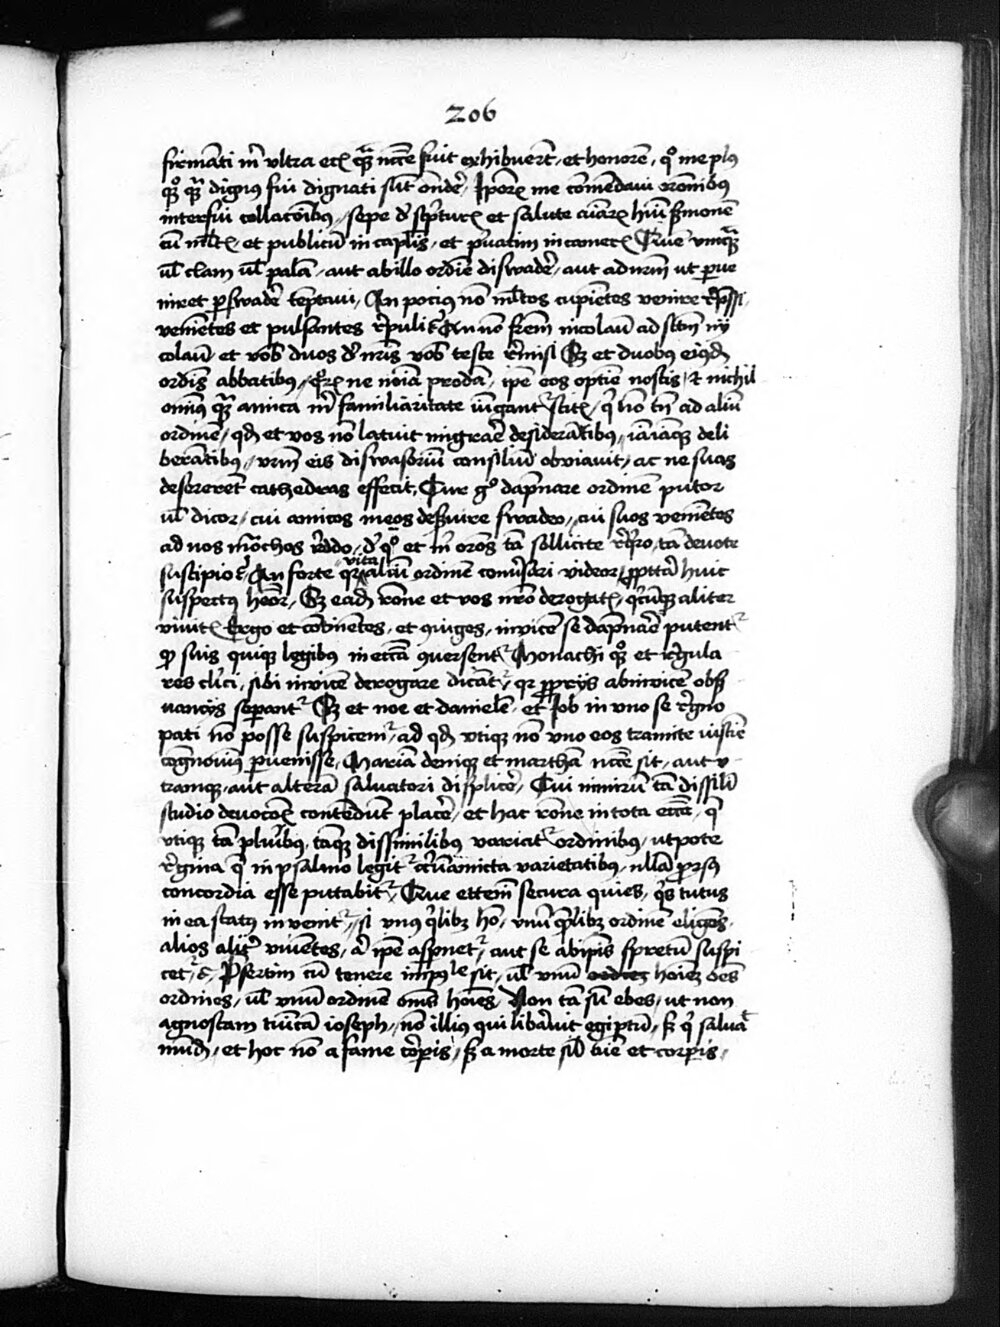 206
firmati m̄ ultra etꝫ qꝫ̄ ncc̄e fuit exhibuert̄ / et honorē / qͦ me plꝰ
qꝫͦ qꝫ̄ dignꝰ fui dignati sūt ondē / Ipoꝝ me cōmēdaui orōnibꝰ
interfui collacōibꝰ / sepe d̓ scpturꝭ et salute aīaꝝ hūi ẜmonē
cū ml̄tꝭ / et publicū in caplīs / et p̄uatim in camerꝭ Quē vnqꝫ̄
ul̄ clam ul̄ palā / aut ab illo ordīe diswadē / aut ad nrm̄ ut ꝑue
niret ꝑswadē tēptaui / An pociꝰ nō ml̄tos cupiētes venire rep̄ssi
venīetes et pulsantes repuli / An nō frēm nicolaū ad sctm̄ ny
colaū et vob̄ duos d̓ nrīs vob̄ teste remisi Sꝫ et duobꝰ eiꝰdꝫ
ordīs abbatibꝰ / qͦꝝ ne noīa prodā / ip̄e eos optīe nostis / ⁊ nichil
omīꝰ qꝫ̄ amica m̄ familiaritate iūgant̄ scitꝭ / qͥ cū tn̄ ad aliū
ordinē / qd̄ et vos nō latuit migraē desiderātibꝰ / iāiāqꝫ deli
berātibꝰ / vnū eis diswasoriū consiliū obuiauit / ac ne suas
desererēt cathedras effecit. Cur gͦ dapnare ordinē putor
ul̄ dicor / cui amicos meos deẜuire swadeo / cui suos venīetes
ad nos mōchos reddo / d̓ qͦ et m̄ orōs tā sollicite reqͥro / tā deuote
suscipio / An forte qr vita aliū ordinē conūsari videor / ꝓpt̄ā huic
suspectꝰ heōr / Sꝫ eadꝫ rōne et vos nrō derogatꝭ / qͥcūqꝫ aliter
viuitꝭ Ergo et cōtinētes / et ꝯiuges / inuicē se dāpnaē putent̄
qͦ suis quiqꝫ legibꝰ in ecc̄ia ꝯuersent̄ Monachi qꝫͦ et regula
res cl̄ici / sibi inuicē derogare dicāt̄ / qr ꝓprijs abinuicē obẜ
uancijs seperant̄ Sꝫ et noe et danielē / et Job in vno se regno
pati nō posse suspicem̄ / ad qd̄ vtiqꝫ nō vno eos tramite iusticie
cognouimꝰ ꝑuenisse / Mariā deniqꝫ et marthā nc̄ce sit / aut v
tramqꝫ / aut alterā saluatori displicē / Cui nimirū tā dissili
studio deuocōeꝫ contēdunt placē / et hac rōne in tota eccīa / qͣ
vtiqꝫ tā plūibꝰ / tāqꝫ dissimilibꝰ variat̄ ordinibꝰ / utpote
regina qͣ in psalmo legit̄ ctc̄ūamicta varietatibꝰ / nullā ꝓrsꝰ
concordia esse putabit̄ / Que ettem̄ secura quies / qͥs tutus
in ea statꝰ inuenit̄ / si vnꝰ qͥlibꝫ hō / vnū qͤlibꝫ ordinē eligēs /
alios alit̓ viuētes / a̓ ip̄e asp̄net̄ / aut se ab ip̄is spretū suspi
cet̄ / Pẜertim cū tenere impoꝰle sit / ul̄ vnū hoīez oēs
ordines / ul̄ vnū ordinē oms̄ hoīes / Non tā sū ebes / ut non
agnoscam tūicā ioseph / nō illiꝰ qui libēauit egiptū / ẜ qͥ saluaᷓ
mūdꝫ / et hoc nō a fame corꝑis / ẜ a morte sil̄ aīe et corꝑis /